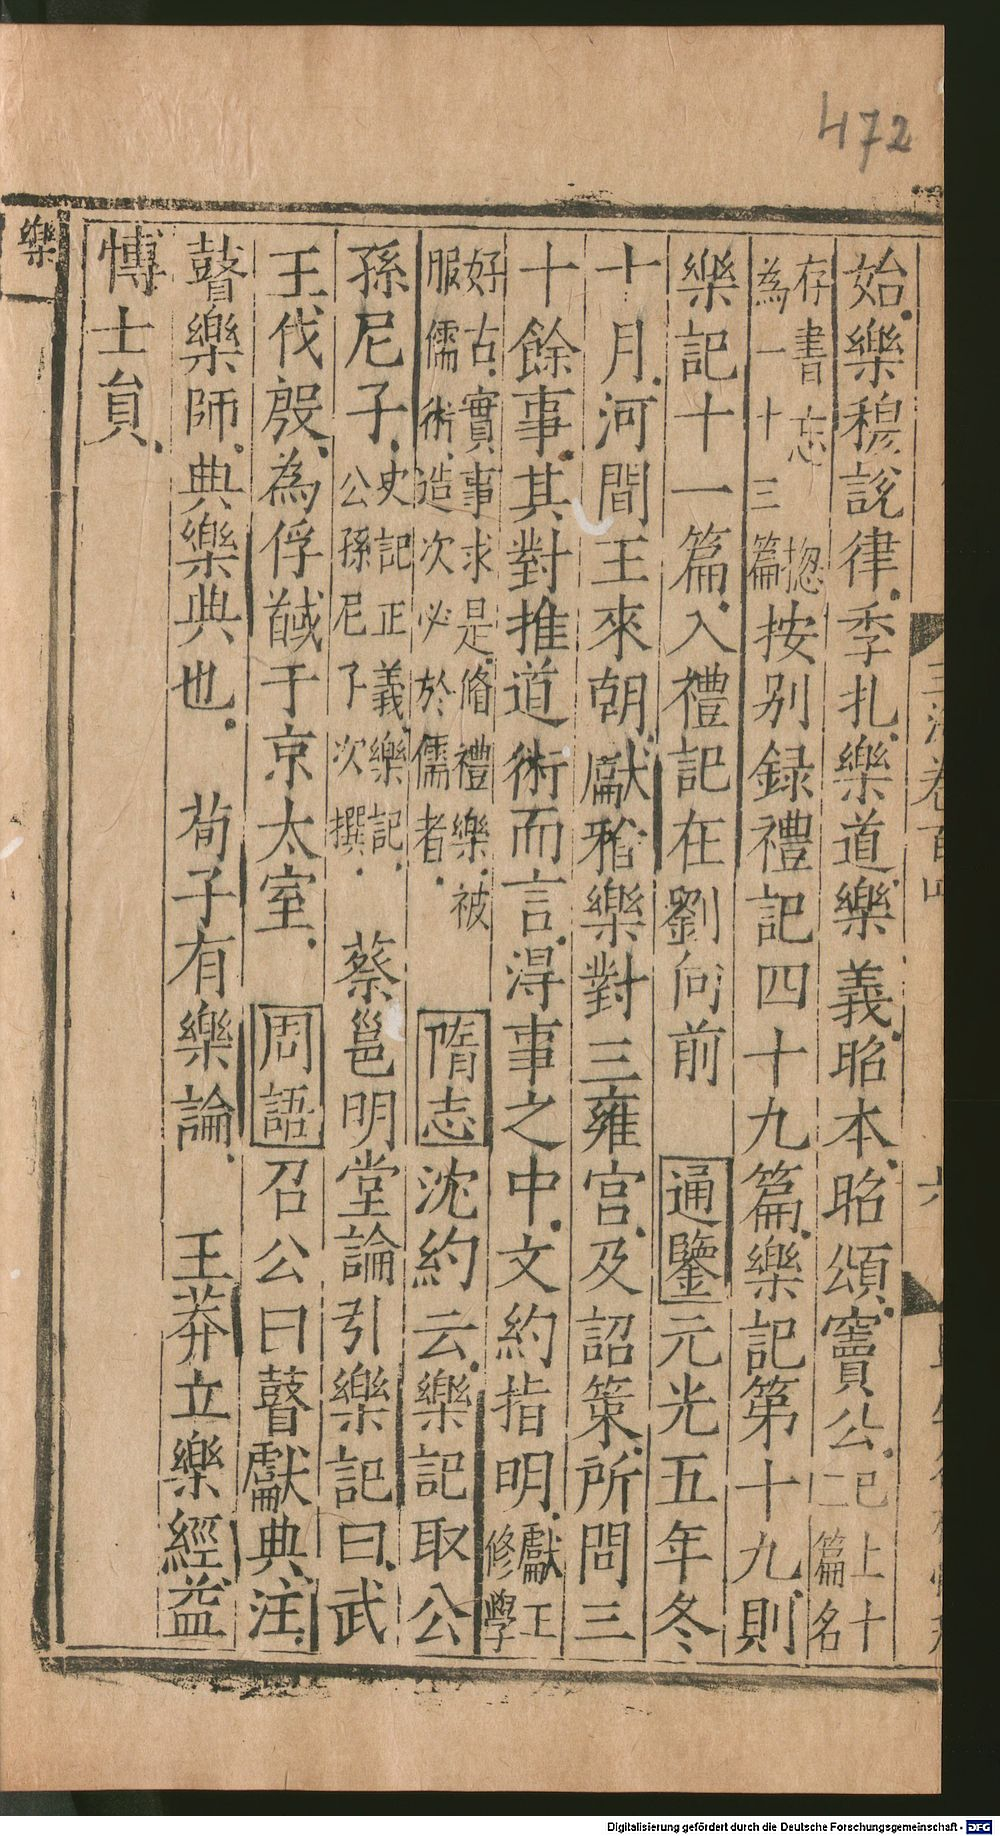 472
始樂穆說律季札樂道樂義昭本昭頌竇公已上十
二篇名
存書亡
為一十三篇
總按別録禮記四十九篇樂記第十九則
樂記十一篇入禮記在劉向前 通鑒元光五年冬
十月河間王來朝獻雅樂對三雍宮及詔策所問三
十餘事其對推道術而言淂事之中文約指明獻王
修學
好古實事求是脩禮樂被
服儒術造次必於儒者 隋志沈約云樂記取公
孫尼子史記正義樂記
公孫尼子次撰 蔡邕明堂論引樂記曰武
王伐殷為俘馘于京太室 周語召公曰瞽獻典注
瞽樂師典樂典也 荀子有樂論 王莽立樂經益
博士員
樂
Digitalisierung gefördert durch die Deutsche Forschungsgemeinschaft - DFG